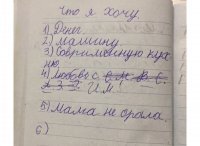 Что я хочу.
1) Денег.
2) машину
3) Современную кух
ню.
4) Любовь с
И.М!
5) Мама не орала.
6)